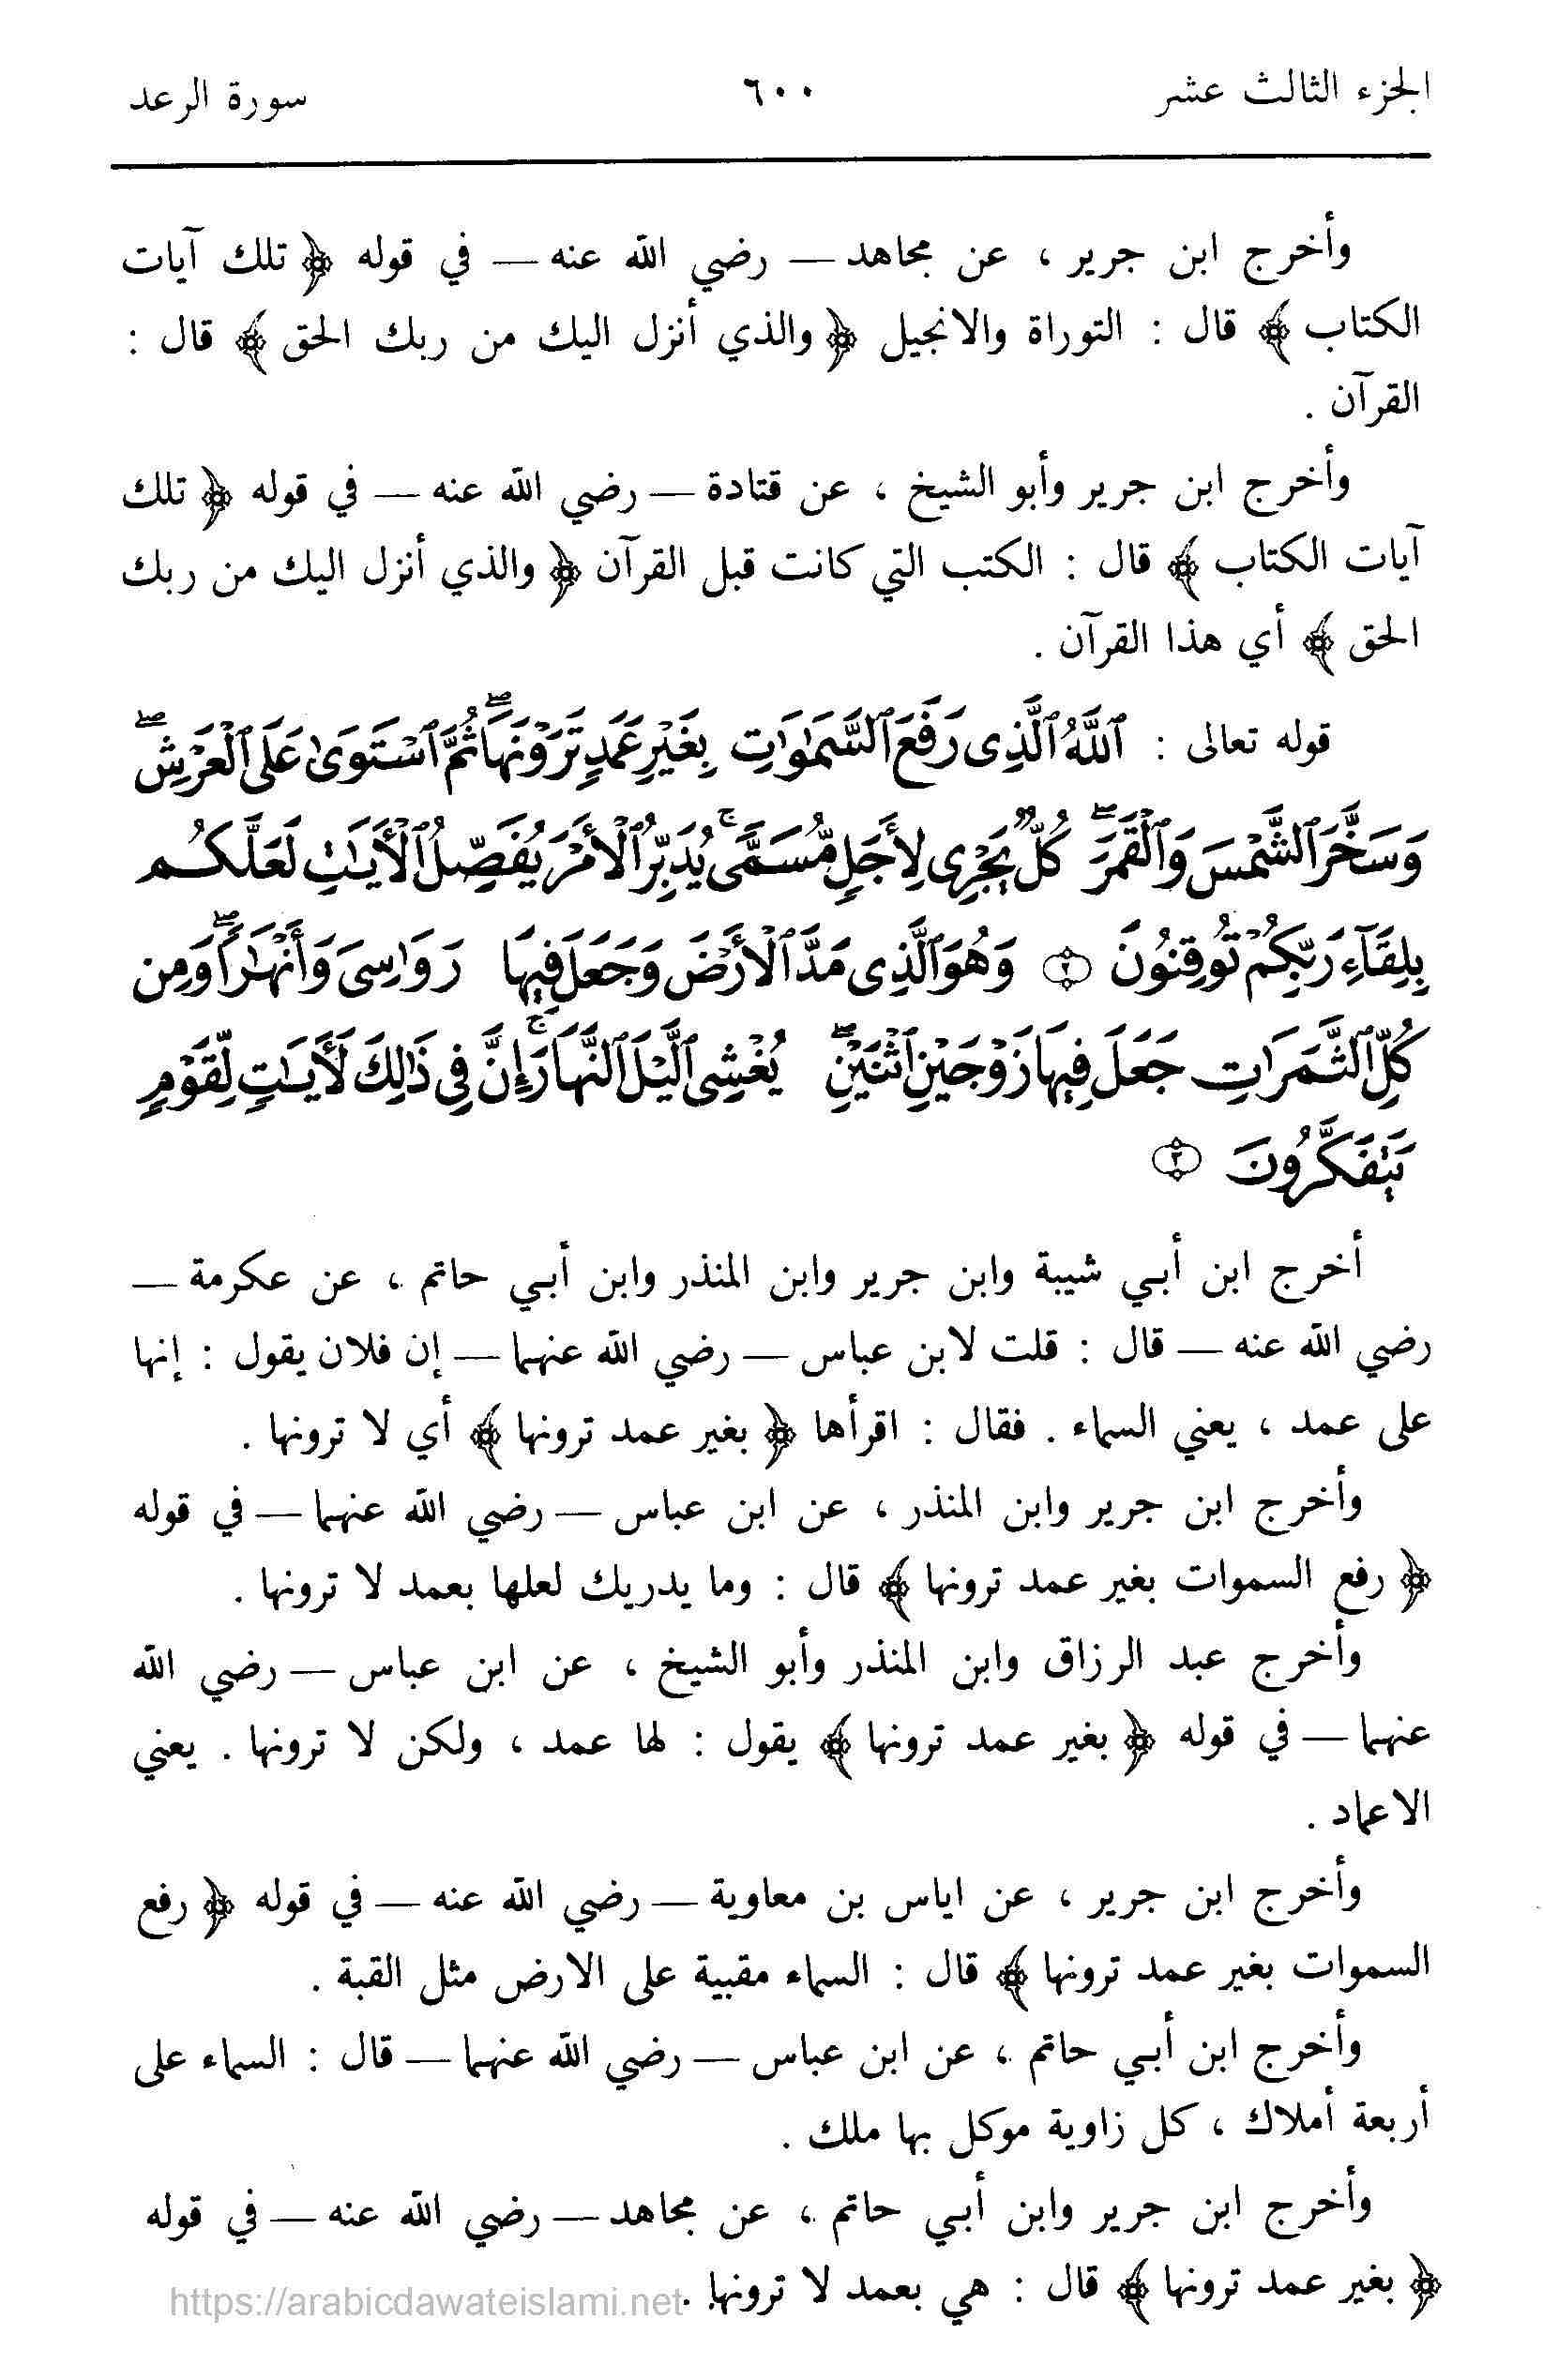 الجزء الثالث عشر ٦٠٠ سورة الرعد
وأخرج ابن جرير ، عن مجاهد — رضي الله عنه — في قوله ﴿ تلك آيات
الكتاب ﴾ قال : التوراة والانجيل ﴿ والذي أنزل اليك من ربك الحق ﴾ قال :
القرآن .
وأخرج ابن جرير وأبو الشيخ ، عن قتادة — رضي الله عنه — في قوله ﴿ تلك
آيات الكتاب ﴾ قال : الكتب التي كانت قبل القرآن ﴿ والذي أنزل اليك من ربك
الحق ﴾ أي هذا القرآن .
قوله تعالى : ٱللَّهُ ٱلَّذِى رَفَعَ ٱلسَّمَٰوَٰتِ بِغَيْرِ عَمَدٍ تَرَوْنَهَا ۖ ثُمَّ ٱسْتَوَىٰ عَلَى ٱلْعَرْشِ ۖ
وَسَخَّرَ ٱلشَّمْسَ وَٱلْقَمَرَ ۖ كُلٌّ يَجْرِى لِأَجَلٍ مُّسَمًّى ۚ يُدَبِّرُ ٱلْأَمْرَ يُفَصِّلُ ٱلْأَيَٰتِ لَعَلَّكُم
بِلِقَآءِ رَبِّكُمْ تُوقِنُونَ ٢ وَهُوَ ٱلَّذِى مَدَّ ٱلْأَرْضَ وَجَعَلَ فِيهَا رَوَٰسِىَ وَأَنْهَٰرًا ۖ وَمِن
كُلِّ ٱلثَّمَرَٰتِ جَعَلَ فِيهَا زَوْجَيْنِ ٱثْنَيْنِ ۖ يُغْشِى ٱلَّيْلَ ٱلنَّهَارَ ۚ إِنَّ فِى ذَٰلِكَ لَأَيَٰتٍ لِّقَوْمٍ
يَتَفَكَّرُونَ ٣
أخرج ابن أبـي شيبة وابن جرير وابن المنذر وابن أبـي حاتم ، عن عكرمة —
رضي الله عنه — قال : قلت لابن عباس — رضي الله عنهما — إن فلان يقول : إنها
على عمد ، يعني السماء . فقال : اقرأها ﴿ بغير عمد ترونها ﴾ أي لا ترونها .
وأخرج ابن جرير وابن المنذر ، عن ابن عباس — رضي الله عنهما — في قوله
﴿ رفع السموات بغير عمد ترونها ﴾ قال : وما يدريك لعلها بعمد لا ترونها .
وأخرج عبد الرزاق وابن المنذر وأبو الشيخ ، عن ابن عباس — رضي الله
عنهما — في قوله ﴿ بغير عمد ترونها ﴾ يقول : لها عمد ، ولكن لا ترونها . يعني
الاعماد .
وأخرج ابن جرير ، عن اياس بن معاوية — رضي الله عنه — في قوله ﴿ رفع
السموات بغير عمد ترونها ﴾ قال : السماء مقببة على الارض مثل القبة .
وأخرج ابن أبـي حاتم ، عن ابن عباس — رضي الله عنهما — قال : السماء على
أربعة أملاك ، كل زاوية موكل بها ملك .
وأخرج ابن جرير وابن أبـي حاتم ، عن مجاهد — رضي الله عنه — في قوله
﴿ بغير عمد ترونها ﴾ قال : هي بعمد لا ترونها .
https://arabicdawateislami.net